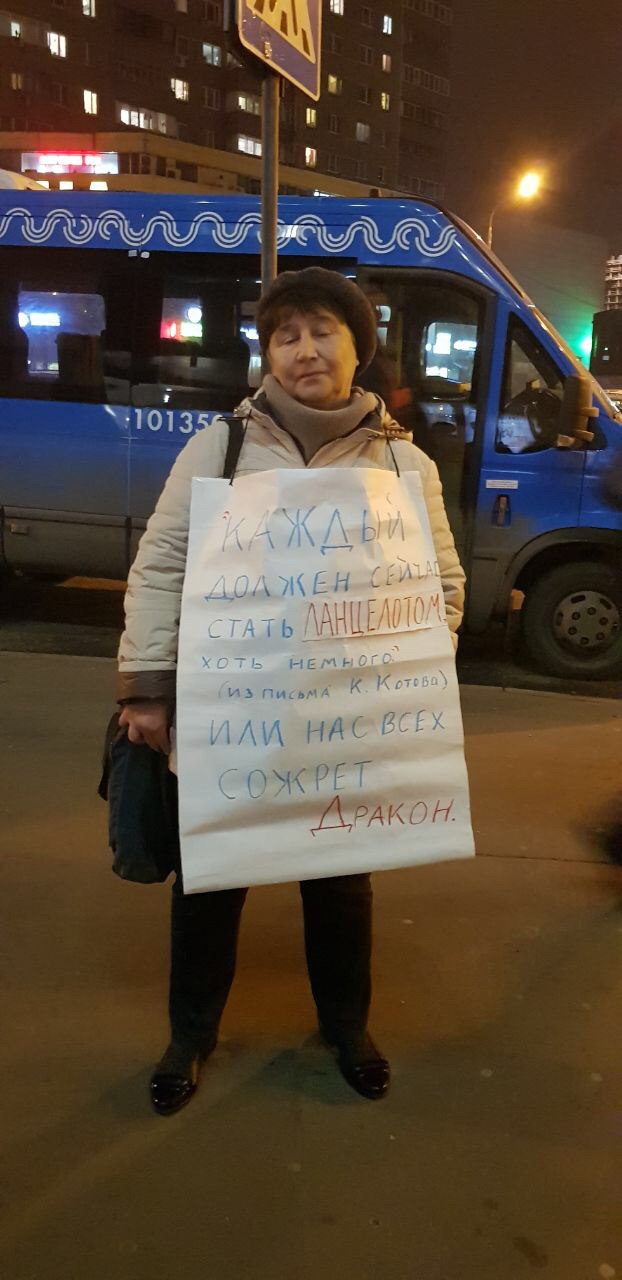 10135
"КАЖДЫЙ
ДОЛЖЕН СЕЙЧАС
СТАТЬ ЛАНЦЕЛОТОМ,
ХОТЬ НЕМНОГО"
(ИЗ ПИСЬМА К. КОТОВА)
ИЛИ НАС ВСЕХ
СОЖРЕТ
ДРАКОН.